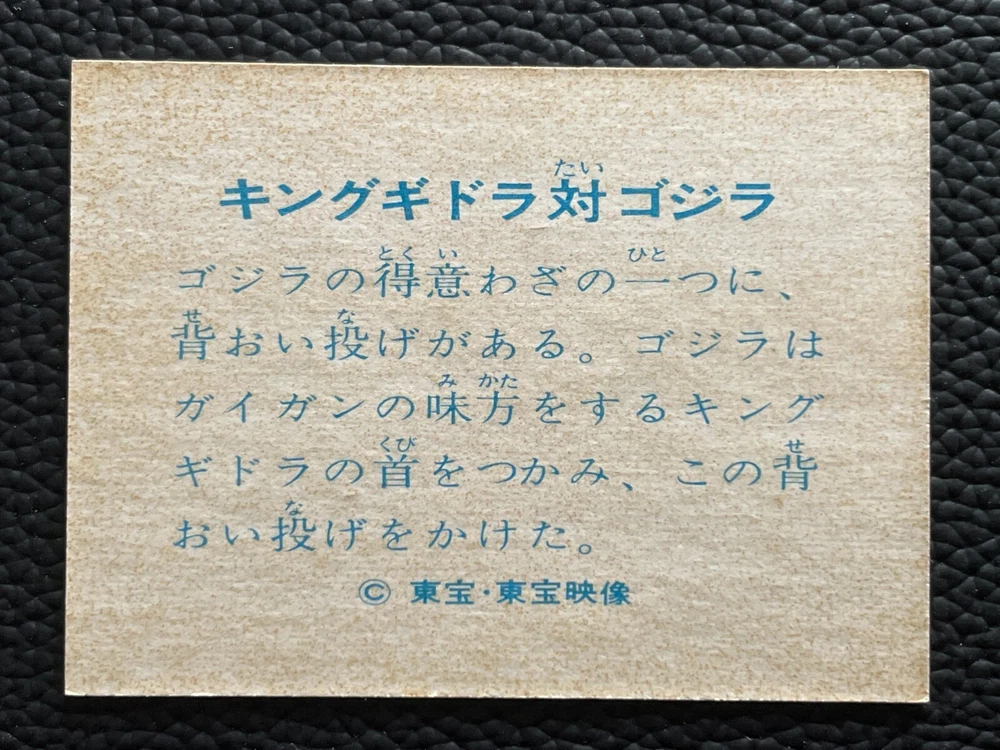 たい
キングギドラ対ゴジラ
とくい ひと
ゴジラの得意わざの一つに、
せ な
背おい投げがある。ゴジラは
み かた
ガイガンの味方をするキング
くび せ
ギドラの首をつかみ、この背
な
おい投げをかけた。
© 東宝・東宝映像